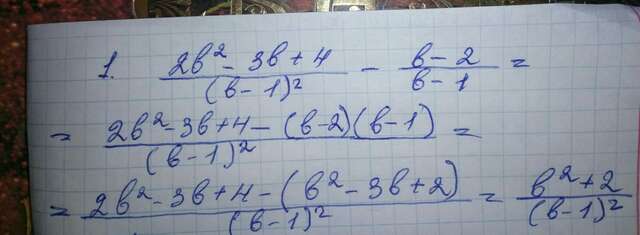 1. (2b² - 3b + 4)/(b - 1)² - (b - 2)/(b - 1) =
= (2b² - 3b + 4 - (b - 2)(b - 1))/(b - 1)² =
= (2b² - 3b + 4 - (b² - 3b + 2))/(b - 1)² = (b² + 2)/(b - 1)²